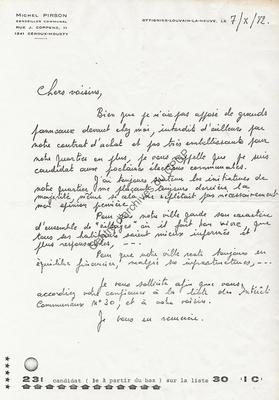 MICHEL PIRSON
CONSEILLER COMMUNAL
RUE J. COPPENS, 11
1341 CÉROUX-MOUSTY
OTTIGNIES-LOUVAIN-LA-NEUVE, LE 7/X/82.
Chers voisins,
Bien que je n'aie pas apposé de grands
panneaux devant chez moi, interdits d'ailleurs par
notre contrat d'achat et pas très embellissants pour
notre quartier en plus, je vous rappelle que je suis
candidat aux prochaines élections communales.
J'ai toujours soutenu les initiatives de
notre quartier me plaçant toujours derrière la
majorité, même si cela ne reflétait pas nécessairement
mon opinion première.
Pour que notre ville garde son caractère
d'ensemble de "villages" où il fait bon vivre, que
tous ses habitants soient mieux informés et
plus responsables, ---
Pour que notre ville reste toujours en
équilibre financier, malgré les infrastructures, ---
Je vous sollicite afin que vous
accordiez votre confiance à la liste des Intérêts
Communaux N° 30, et à votre voisin.
Je vous en remercie.
23e candidat (3e à partir du bas) sur la liste 30 "IC"